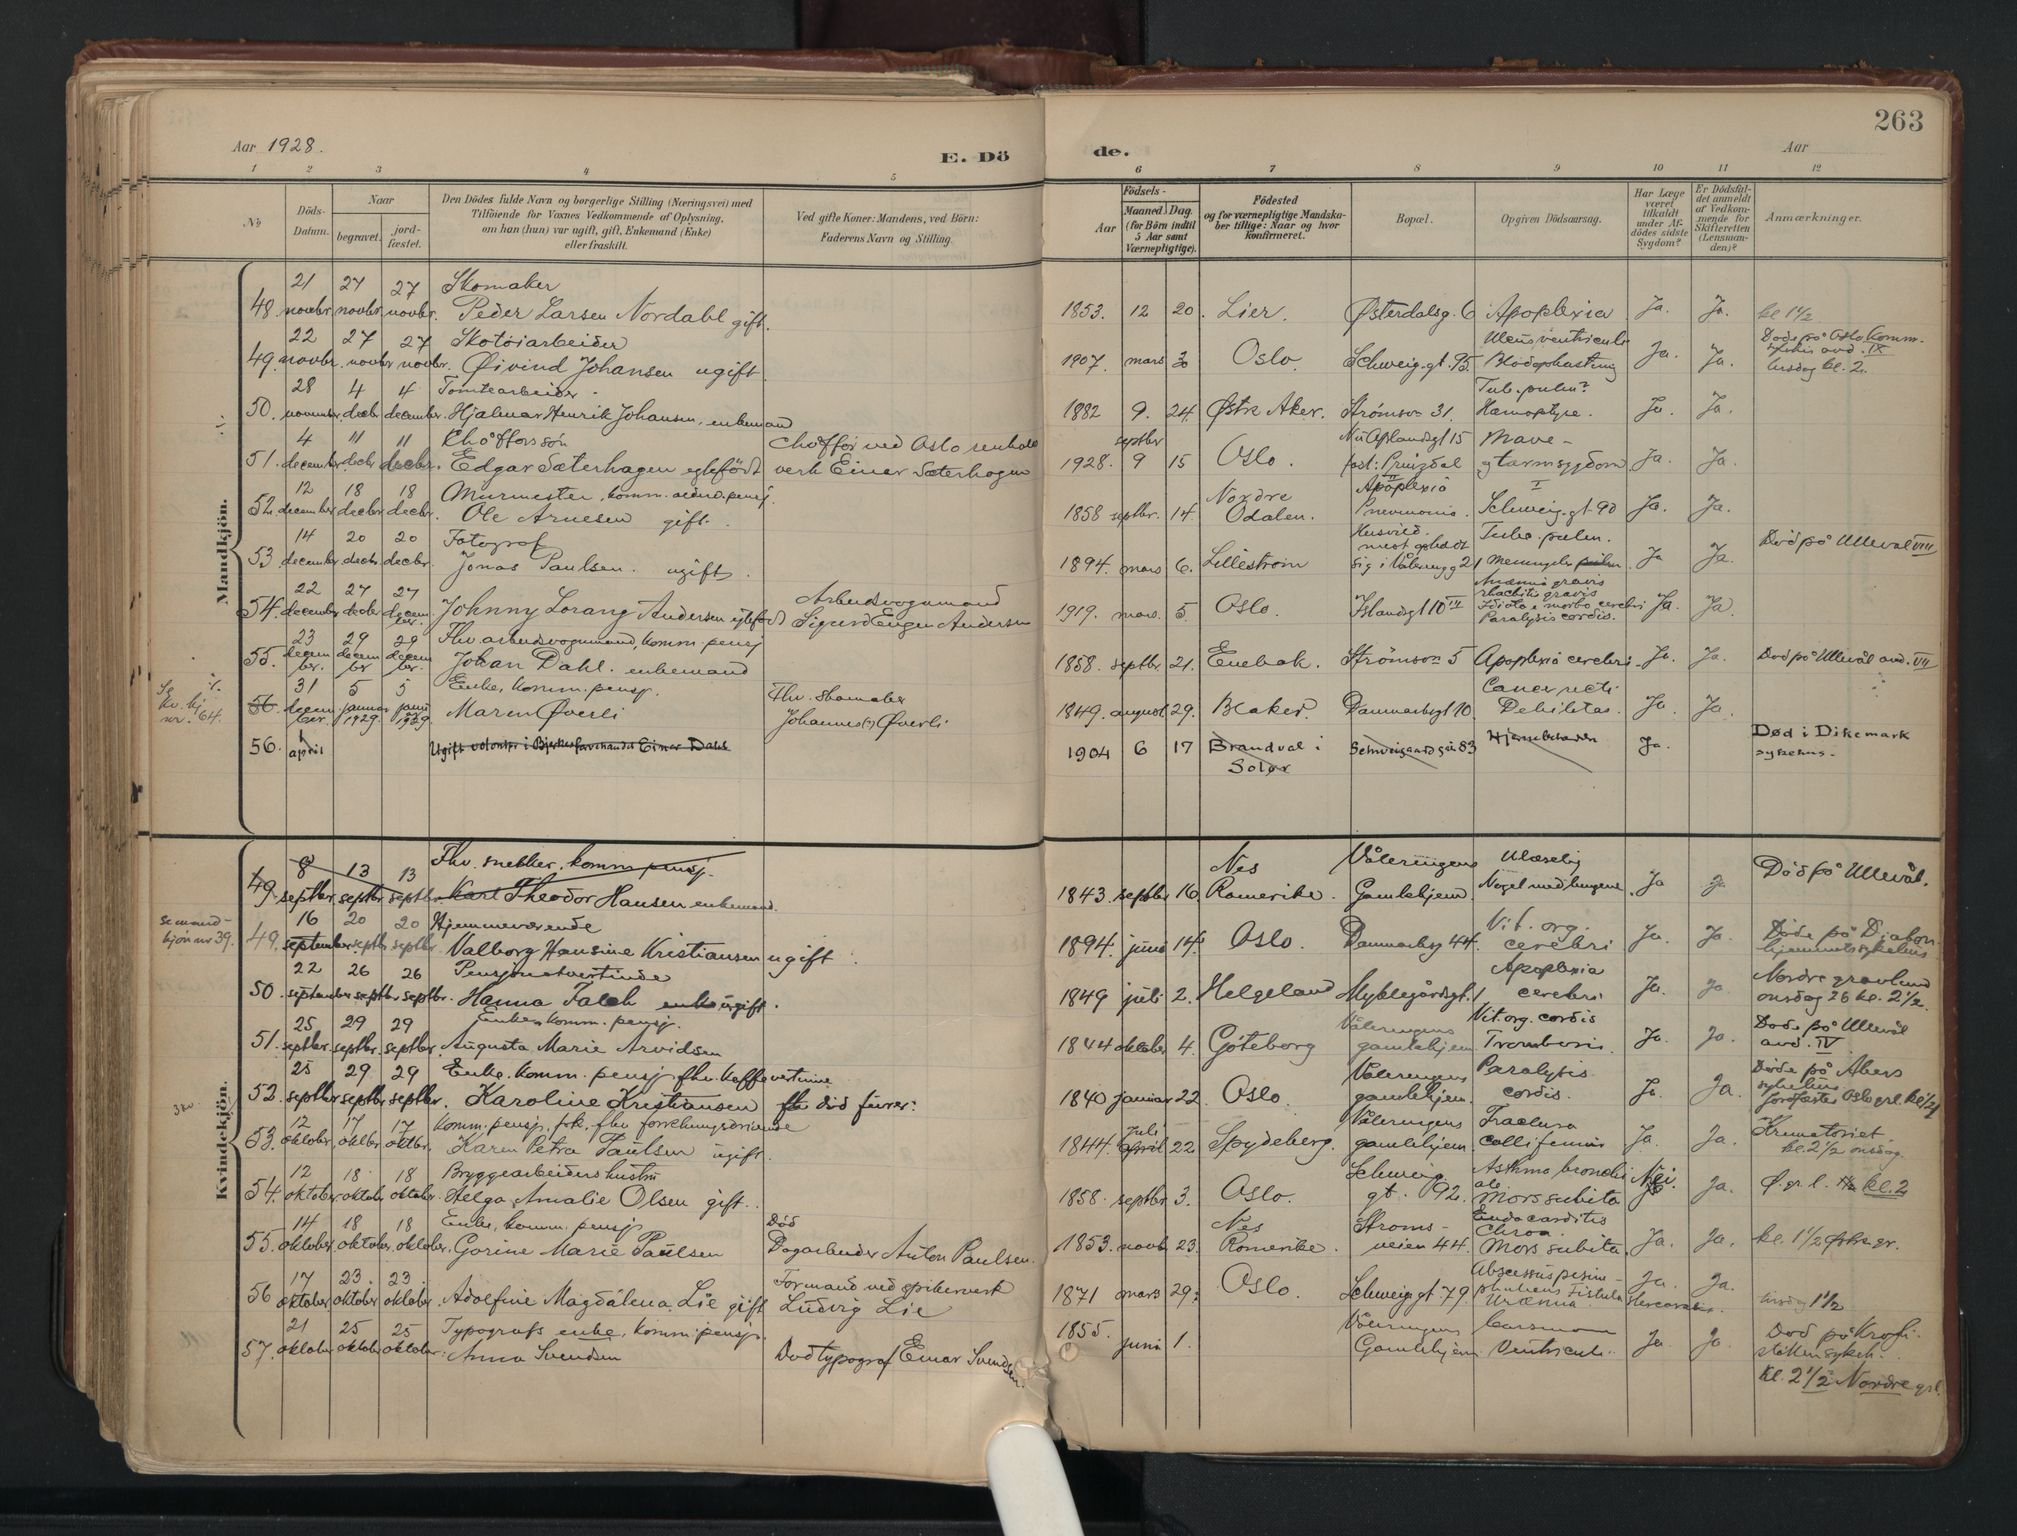 263
Aar 1928.
E. Dö
de.
Aar
1 2 3 4 5 6 7 8 9 10 11 12
No
Döds-Datum.
Naar
begravet.
jord-fæstet.
Den Dödes fulde Navn og borgerlige Stilling (Næringsvei) med
Tilföiende for Voxnes Vedkommende af Oplysning,
om han (hun) var ugift, gift, Enkemand (Enke)
eller fraskilt.
Ved gifte Koner: Mandens, ved Börn:
Faderens Navn og Stilling.
Födsels-
Aar
Maaned. Dag.
(for Börn indtil
5 Aar samt
Værnepligtige).
Födested
og for værnepligtige Mandska-
ber tillige: Naar og hvor
konfirmeret.
Bopæl.
Opgiven Dödsaarsag.
Har Læge
været
tilkaldt
under Af-
dödes sidste
Sygdom?
Er Dödsfal-
det anmeldt
af Vedkom-
mende for
Skifteretten
(Lensman-
den)?
Anmærkninger.
Mandkjön.
21 27 27 Skomaker
48. novbr. novbr. novbr. Peder Larsen Nordahl gift. 1853. 12 20. Lier. Østerdalsg. 6 Apoplexia Ja. Ja. kl 1 1/2
22 27 27 Skotøiarbeider Ulcus ventriculi Døde på Oslo Komm.
49. novbr. novbr. novbr. Øivind Johansen ugift. 1907. mars 3 Oslo. Schweig. gt. 95. Ja. Ja. sykehus avd. IX
tirsdag kl. 2.
28 4 4 Tomtearbeider. Tub. pulm?
50. november. decbr. december. Hjalmar Henrik Johansen, enkemand 1882 9. 24. Østre Aker. Strømsvn 31. Hæmoptyse. Ja. Ja.
4 11 11 Chófførsøn chófför ved Oslo renhold septbr Mave-
51. december. decbr. decbr. Edgar Sæterhagen egtefødt verk Einar Sæterhagen 1928. 9 15 Oslo. Prinzdal og tarmsygdom Ja. Ja.
12 18 18 Murmester, komm. pensj. Nordre Apoplexiâ I
52. december decbr decbr. Ole Arnesen gift. 1858 septbr. 14. Odalen. Pneumonia. Schweig. gt. 90 Ja. Ja.
14 20 20 Fotograf Husvild. Tube. pulm. Død på Ullevål VIII
mest opholdt
53 december decbr decbr. Jonas Paulsen. ugift. 1894. mars 6. Lillestrøm sig i Vålerengg 21 Ja Ja.
22 27 27 Arbeidsvognmand Anæmia gravis
rhachitis gravis
54. december decbr decem ber. Johnny Lorang Andersen egtefødt Sigurd Eugen Andersen 1919. mars. 5 Oslo. Islandsgt 10 III Idiotia e morbo cerebri Ja. Ja
Paralysis cordis.
23 29 29 Fhv. arbeidsvognmand, komm. pensj
55. decem ber. decem br decem ber. Johan Dahl. enkemand 1858. septbr 21. Enebak. Strømsvn 5 Apoplexia cerebri Ja. Ja. Død på Ullevål avd. VII
31 5 5 Enke, komm. pensj. Fhv. skomaker Cancer recti
Se
kv. kj.
nr. 64.
56. decem ber. januar 1929. janu 1929. Maren Øverli Johannes (?) Øverli 1849. august 29. Blaker. Danmarksgt 10. Debilitas. Ja. Ja.
56. 1 april Ugift volontør i Bjerke forstander Einar Dahl 1904 6 17 Brandval i Solør Schweigaardsgate 83 Ja. Død i Dikemark
sykehus.
Kvindekjön.
8 13 13 Fhv. snekker, komm pensj. Nes Vålerengens Ulæselig
49. septbr septbr septbr. Karl Theodor Hansen enkemand. 1843 septbr 16. Romerike. Gamlehjem. Noget med lungene. Ja Ja Død på Ullevål.
Se mand-
kjøn nr 39.
16 20 20 Hjemmeværende Vit. org. Døde på Diakon-
49. september. septbr septbr Valborg Hansine Kristiansen ugift. 1894. juni 14. Oslo. Danmarksg 44. cerebri Ja. Ja. hjemmets sykehus
22 26 26 Pensjonatvertinde Apoplexia Nordre gravlund
50. september septbr septbr. Hanna Falch enke ugift. 1849 juli 2. Helgeland Myklegårdsgt. 1 cerebri Ja. Ja. onsdag 26 kl. 2 1/2
25 29 29 Enke, komm. pensj. Vålerengens Vit. org. cordis Døde på Ullevål
51. septbr. septbr. septbr. Augusta Marie Arvidsen 1844 oktober 4. Göteborg gamlehjem. Trombosis. Ja. Ja. avd. IV
25 29 29 Enke. komm. pensj fhv. kaffevertinne Vålerengens Paralysis Døde på Akers
52. septbr septbr septbr. Karoline Kristiansen 1840 januar 22. Oslo. gamlehjem. cordis. Ja. Ja. sykehus
12 17 17 Komm. pensj. frk, fhv forretningsdrivende juli Vålerengens Fractura Krematoriet.
53. oktober. oktbr. oktbr. Karen Petra Paulsen ugift. 1844. april 22. Spydeberg. gamlehjem. colli femur Ja. Ja. kl. 2 1/2 onsdag.
12 18 18 Bryggearbeiders hustru Schweig. Asthma bronchi Nei.
54. oktober oktober oktober. Helga Amalie Olsen gift. 1858. septbr. 3. Oslo. gt. 92. Mors subita Ja. Ø. gr. l. kl. 2
14 18 18 Enke, komm. pensj Død Nes Strøms- Endocarditis
55. oktober. oktober. oktober. Gorine Marie Paulsen Dagarbeider Anton Paulsen. 1853. novb. 23. Romerike. veien 44. Mors subita Ja. Ja. kl. 1 1/2 Østre gr.
17 23. 23. Formand ved spikerverk
56 oktober oktober oktober. Adolfine Magdalena Lie gift Ludvig Lie 1871 mars 29. Oslo. Schweig. gt 79. Ja. Ja. tirsdag 1 1/2
21 25 25 Typografs enke, komm. pensj. Vålerengens Død på Krefi-
57. oktober oktober oktober. Anna Svendsen Død typograf Einar Svendsen. 1855. juni 1. Gamlehjem Ventriculi. Ja. Ja. støtten sykeh.
kl. 2 1/2 Nordre grl.